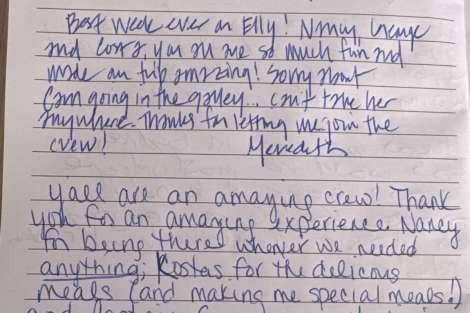 Best week ever on Elly! Nancy, George
and Costa, you all are so much fun and
made our trip amazing! Sorry about
Cam going in the galley.. can't take her
anywhere. Thanks for letting me join the
crew! Meredith
yall are an amazing crew! Thank
you for an amazing experience. Nancy
for being there whenever we needed
anything; Kostas for the delicous
meals (and making me special meals!)